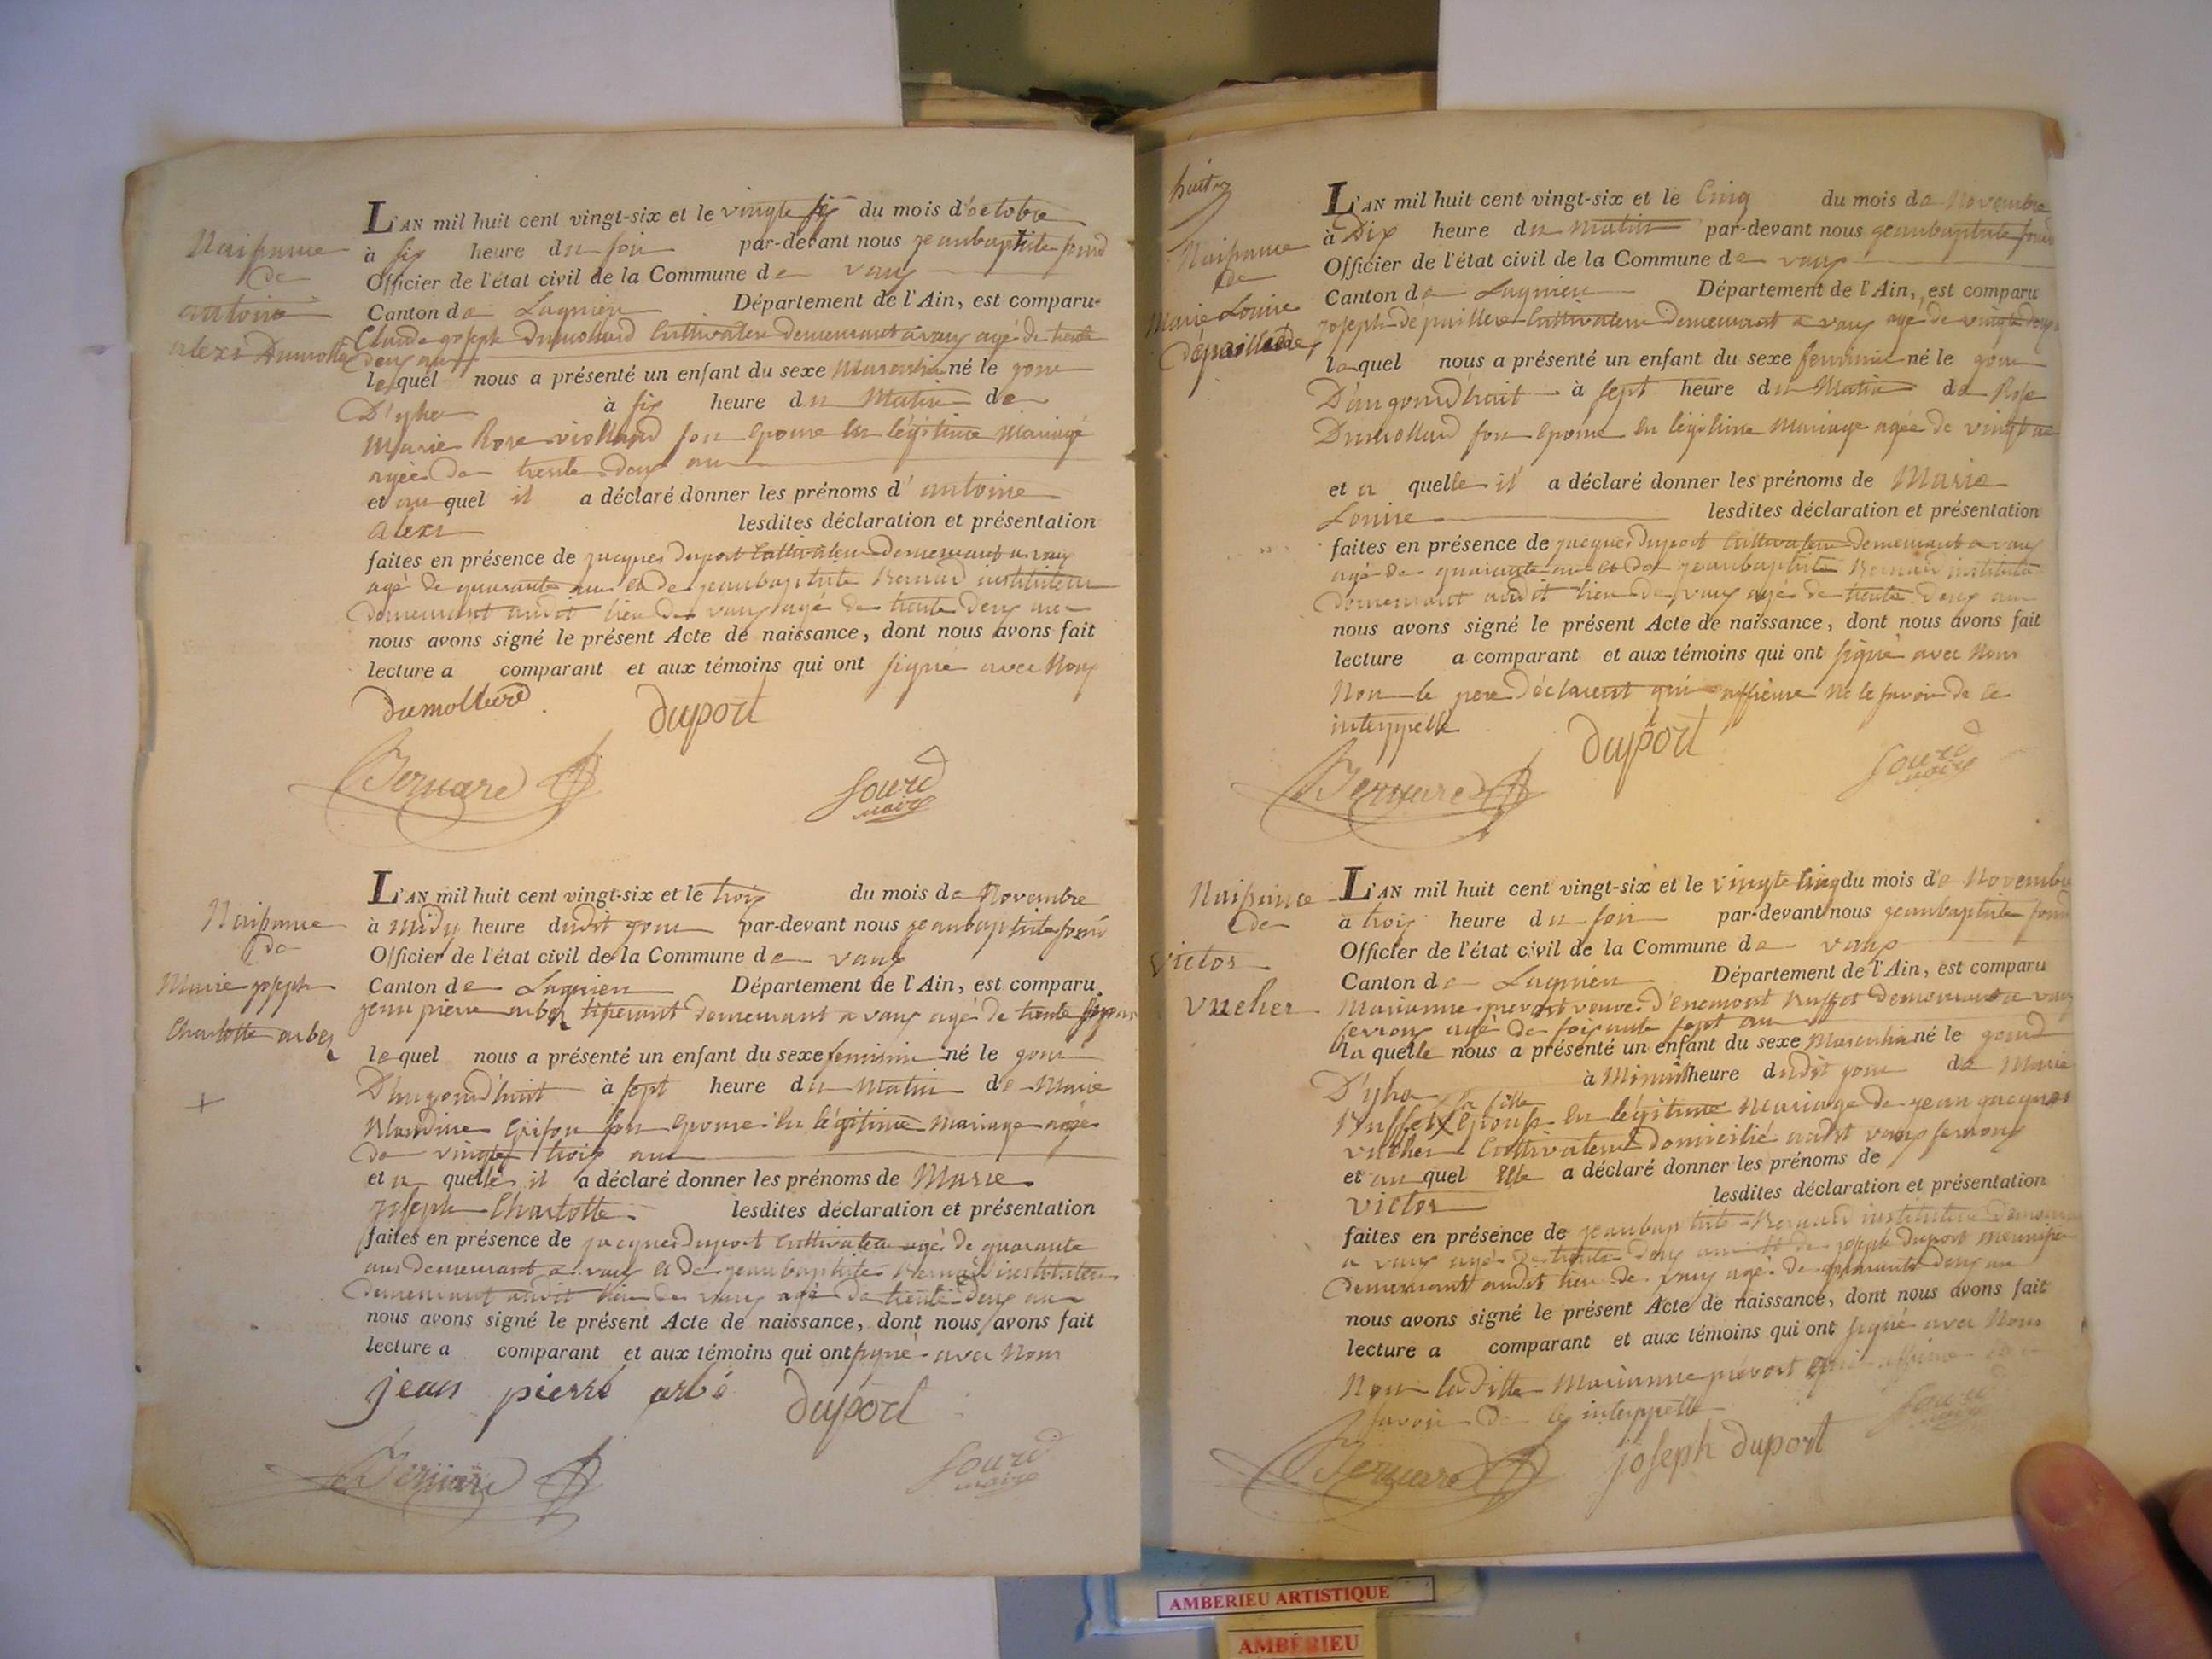 Naissance
de
antoine
alexi Dumollard
L'AN mil huit cent vingt-six et le vingte six du mois d'octobre
à six heure du soir par-devant nous jeanbaptiste
Officier de l'état civil de la Commune de vaux
Canton de Lagnieu Département de l'Ain, est comparu
Claude joseph Dumollard Cultivateur Demeurant a vaux agé de trente
deux ans
lequel nous a présenté un enfant du sexe Masculin né le jour
D'yher à six heure du Matin de
Marie Rose violland son Epouse en légitime Mariage
agée de trente deux ans
et au quel il a déclaré donner les prénoms d'antoine
alexi lesdites déclaration et présentation
faites en présence de jacques Duport Cultivateur Demeurant a vaux
agé de quarante ans et de jeanbaptiste Bernard instituteur
Demeurant audit lieu de vaux agé de trente deux ans
nous avons signé le présent Acte de naissance, dont nous avons fait
lecture a comparant et aux témoins qui ont signé avec Nous
dumollard duport
Bernard
maire
Naissance
de
Marie joseph
Charlotte arbez
+
L'AN mil huit cent vingt-six et le trois du mois de Novembre
à midy heure dudit jour par-devant nous jeanbaptiste
Officier de l'état civil de la Commune de vaux
Canton de Lagnieu Département de l'Ain, est comparu
jean pierre arbez tisserant Demeurant a vaux agé de trente six ans
lequel nous a présenté un enfant du sexe feminin né le jour
D'aujourd'huit à sept heure du Matin de Marie
Blandine son Epouse en légitime Mariage agée
de vingte trois ans
et a quelle il a déclaré donner les prénoms de Marie
joseph Charlotte lesdites déclaration et présentation
faites en présence de jacques Duport Cultivateur agé de quarante
ans demeurant a vaux et de jeanbaptiste Bernard instituteur
Demeurant audit lieu de vaux agé de trente deux ans
nous avons signé le présent Acte de naissance, dont nous avons fait
lecture a comparant et aux témoins qui ont signé avec Nous
jean pierre arbé duport
Bernard
maire
huit
Naissance
de
Marie Louise
L'AN mil huit cent vingt-six et le Cinq du mois de Novembre
à Dix heure du matin par-devant nous jeanbaptiste
Officier de l'état civil de la Commune de vaux
Canton de Lagnieu Département de l'Ain, est comparu
joseph Cultivateur Demeurant a vaux agé de vingte
lequel nous a présenté un enfant du sexe feminin né le jour
D'aujourd'huit à sept heure du Matin de Rose
Dumollard son Epouse en légitime Mariage agée de
et a quelle il a déclaré donner les prénoms de Marie
Louise lesdites déclaration et présentation
faites en présence de jacques Duport Cultivateur Demeurant a vaux
agé de quarante ans et de jeanbaptiste Bernard
Demeurant audit lieu de vaux agé de trente deux ans
nous avons signé le présent Acte de naissance, dont nous avons fait
lecture a comparant et aux témoins qui ont signé avec Nous
Non le pere Déclarent qui affirme ne le savoir de ce
interppellé
duport
Bernard
maire
Naissance
de
victor
vucher
L'AN mil huit cent vingt-six et le vingte Cinq du mois de Novembre
à trois heure du soir par-devant nous jeanbaptiste
Officier de l'état civil de la Commune de vaux
Canton de Lagnieu Département de l'Ain, est comparu
Marianne prevost veuve Demeurant a vaux
agé de soixante sept ans
laquelle nous a présenté un enfant du sexe Masculin né le jour
D'yher à Minuit heure dudit jour de Marie
la fille
Epouse en légitime Mariage de jean jacques
vucher Cultivateur Domicilié audit vaux
et au quel Elle a déclaré donner les prénoms de
victor lesdites déclaration et présentation
faites en présence de jeanbaptiste Bernard instituteur
a vaux agé de trente deux ans et de joseph Duport
Demeurant audit lieu de vaux agé de quarante deux ans
nous avons signé le présent Acte de naissance, dont nous avons fait
lecture a comparant et aux témoins qui ont signé avec Nous
Non laditte Marianne prévost qui affirme
savoir de ce interppellé
Bernard joseph duport
AMBERIEU ARTISTIQUE
AMBÉRIEU